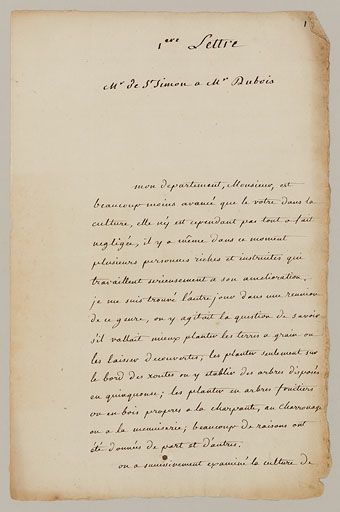 1
1ere Lettre
Mr de St Simon a Mr Dubois
mon departement, Monsieur, est
beaucoup moins avancé que le votre dans la
culture, elle n'y est cependant pas tout a fait
negligée, il y a même dans ce moment
plusieurs personnes riches et instruites qui
travaillent serieusement a son amelioration.
je me suis trouvé l'autre jour dans une reunion
de ce genre, on y agitait la question de savoir
s'il vallait mieux planter les terres a grain ou
les laisser decouvertes, les planter seulement sur
le bord des routes ou y etablir des arbres disposés
en quinquonce; les planter en arbres fruitiers
ou en bois propres a la charpente, au charronage
ou a la menuiserie; beaucoup de raisons ont
été données de part et d'autres.
on a successivement examiné la culture de